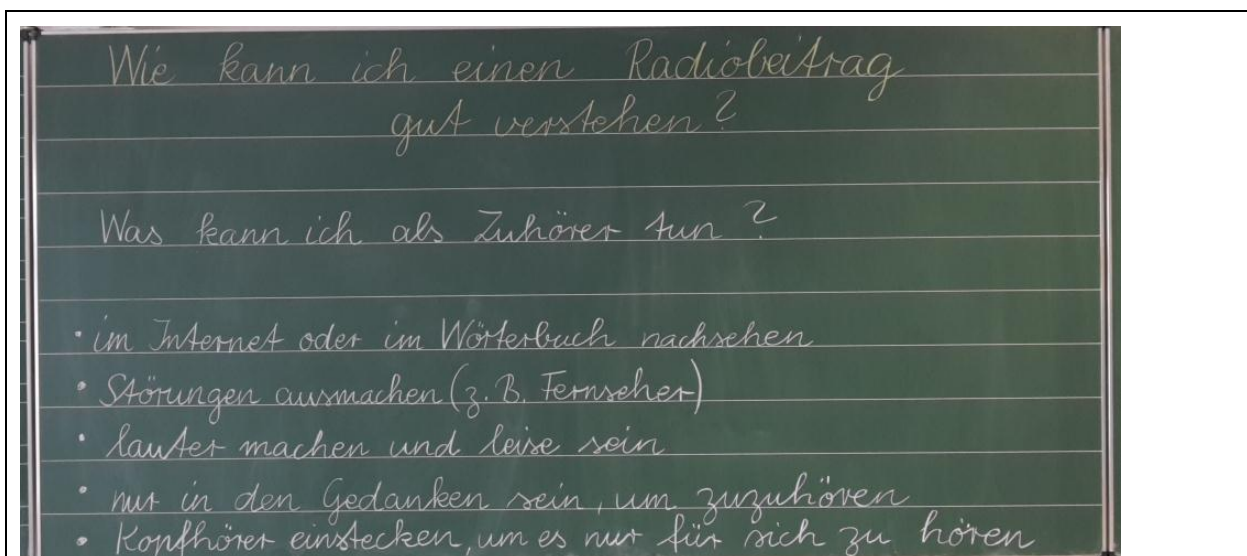 Wie kann ich einen Radiobeitrag
gut verstehen?
Was kann ich als Zuhörer tun?
· im Internet oder im Wörterbuch nachsehen
· Störungen ausmachen (z. B. Fernseher)
· lauter machen und leise sein
· nur in den Gedanken sein, um zuzuhören
· Kopfhörer einstecken, um es nur für sich zu hören